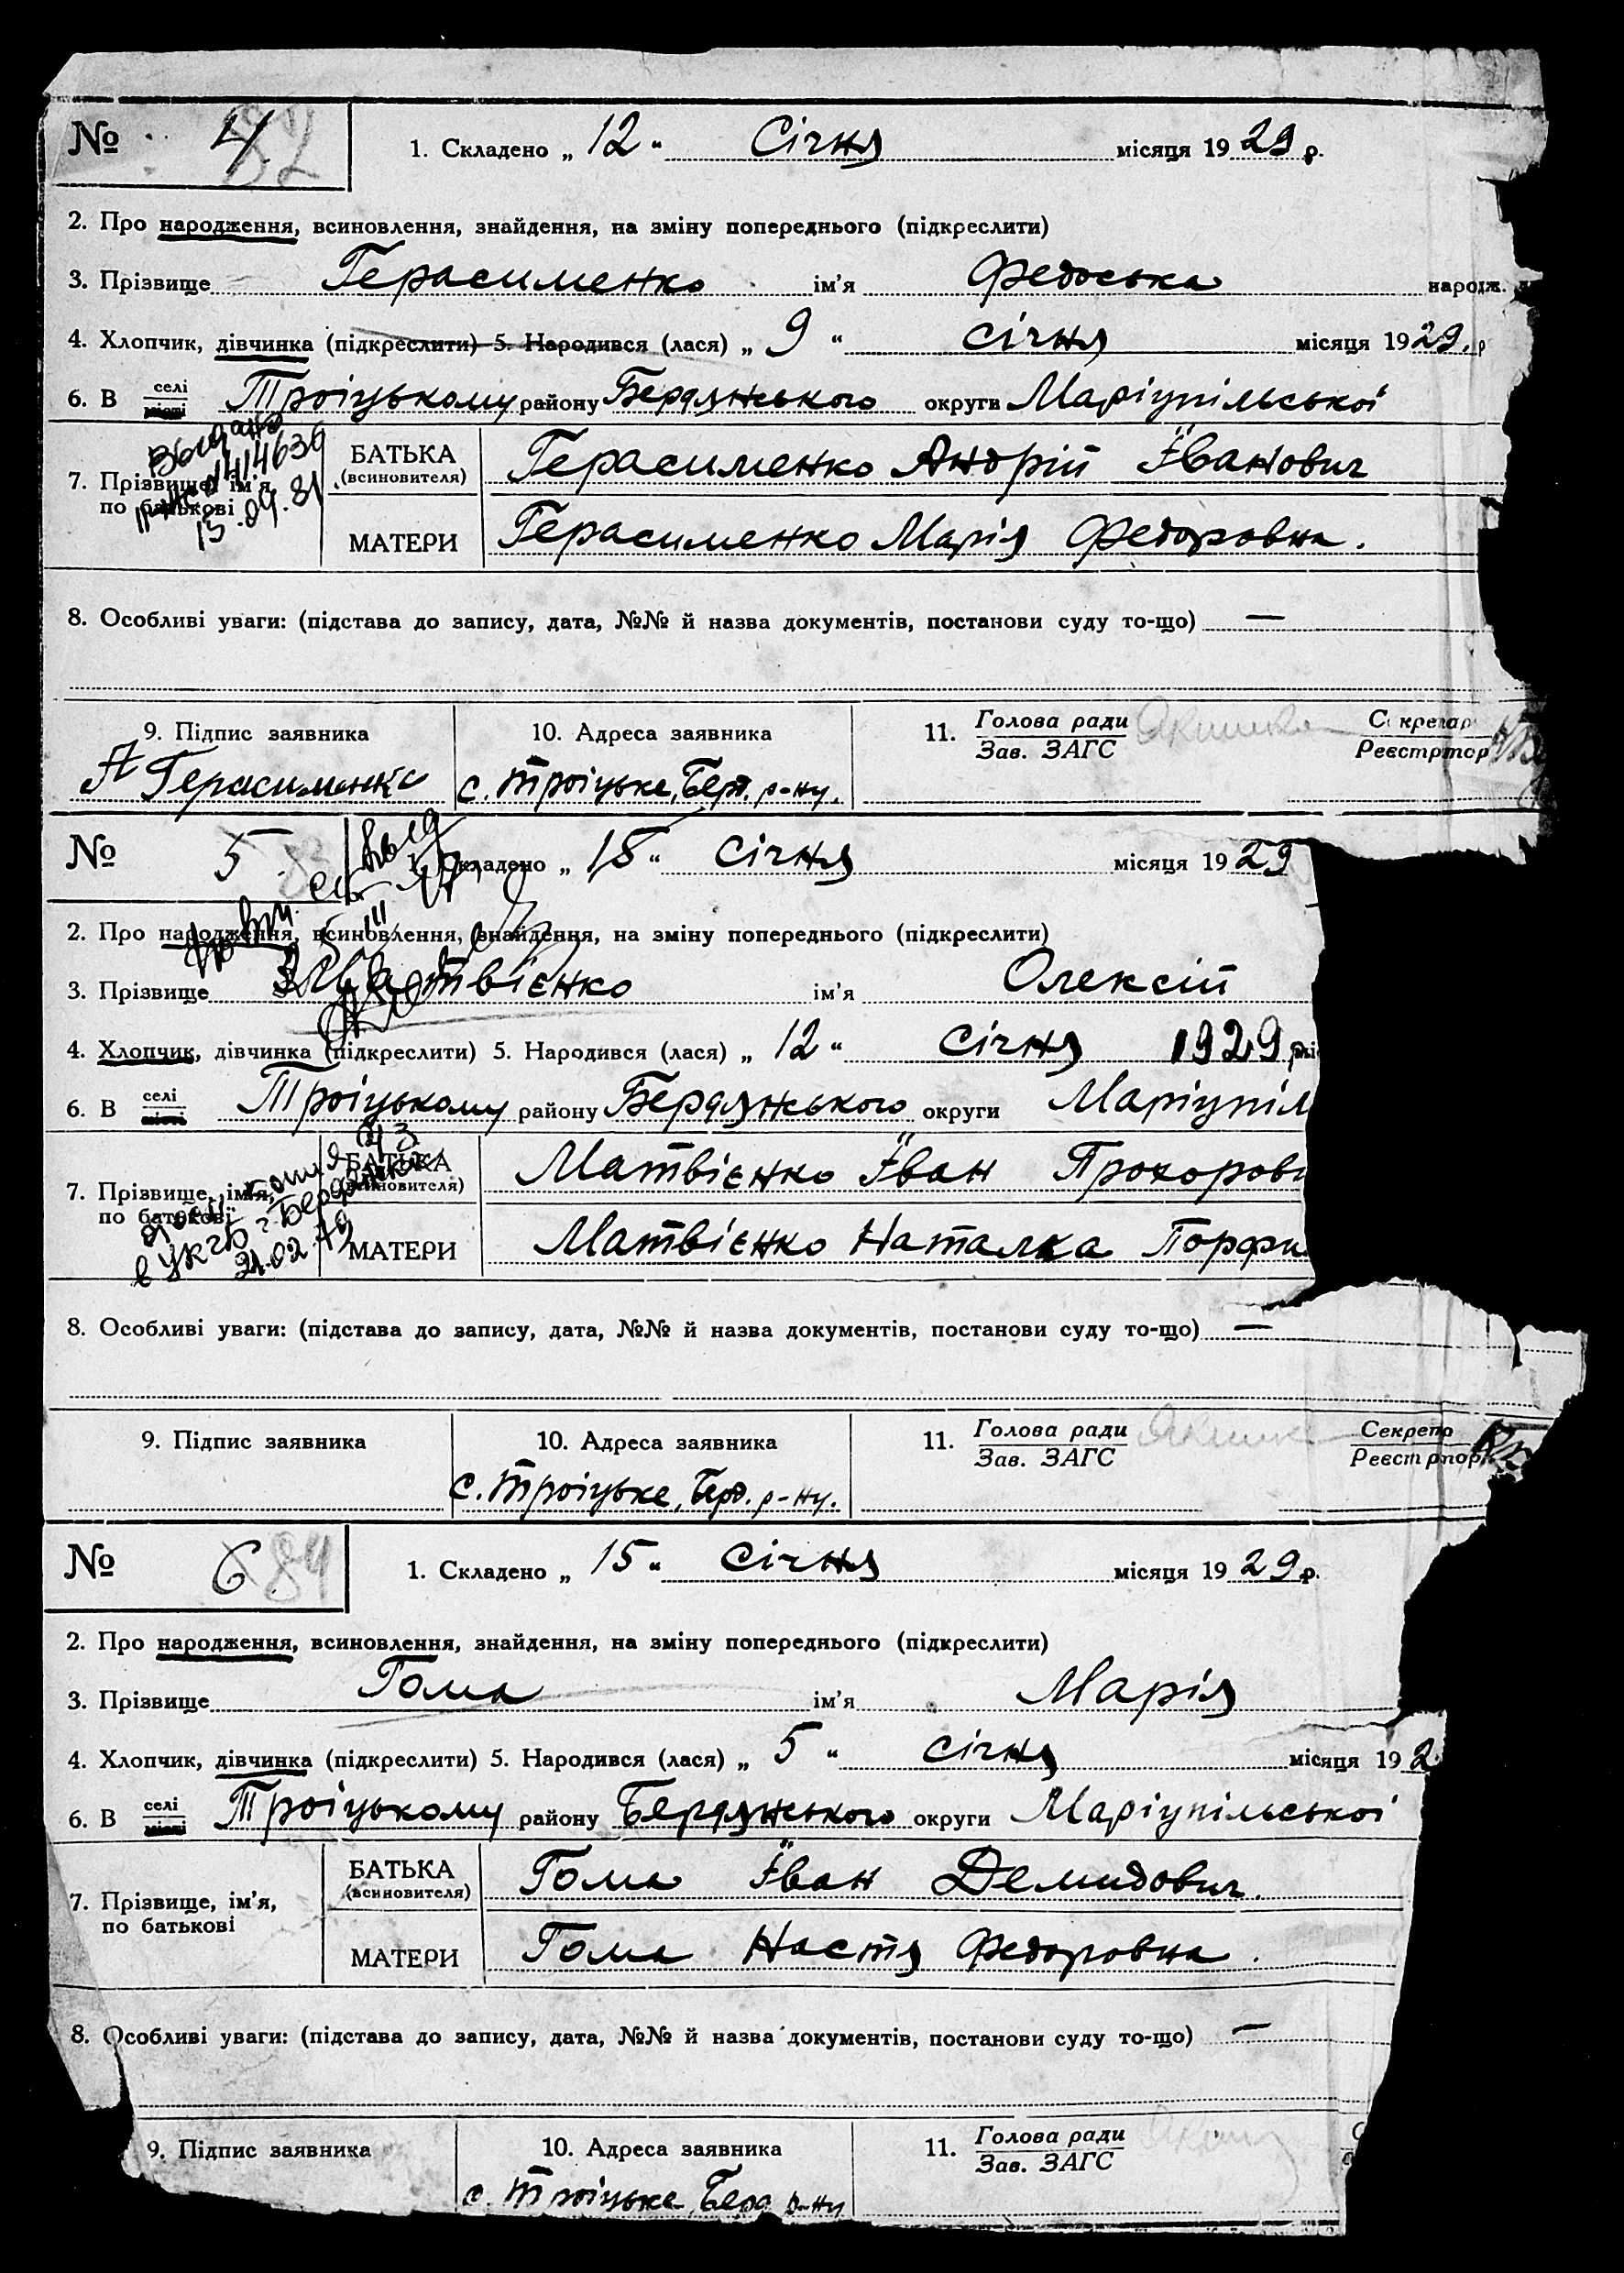 № 4. 82
1. Складено „ 12 " Січня місяця 1929 р.
2. Про народження, всиновлення, знайдення, на зміну попереднього (підкреслити)
3. Прізвище Герасименко ім'я Федоська народж.
4. Хлопчик, дівчинка (підкреслити) 5. Народився (лася) „ 9 " січня місяця 1929. р
6. В селі місті Троіцькому району Бердянського округи Маріупільської
Выдано
1414636
13.09.81
7. Прізвище, ім'я, по батькові
БАТЬКА (всиновителя) Герасименко Андрій Іванович
МАТЕРИ Герасименко Марія Федоровна.
8. Особливі уваги: (підстава до запису, дата, №№ й назва документів, постанови суду то-що) —
9. Підпис заявника
А Герасименко
10. Адреса заявника
с. Троіцьке, Берд. р-ну.
11. Голова ради
Зав. ЗАГС
Секретар
Реєстратор
№ 5 83
1. Складено „ 15 " січня місяця 1929
2. Про народження, всиновлення, знайдення, на зміну попереднього (підкреслити)
3. Прізвище Матвієнко ім'я Олексій
4. Хлопчик, дівчинка (підкреслити) 5. Народився (лася) „ 12 " січня 1929 р
6. В селі місті Троіцькому району Бердянського округи Маріупіл
7. Прізвище, ім'я, по батькові
21.02.79
БАТЬКА (всиновителя) Матвієнко Іван Прохорови
МАТЕРИ Матвієнко Наталка Порфи
8. Особливі уваги: (підстава до запису, дата, №№ й назва документів, постанови суду то-що) —
9. Підпис заявника
10. Адреса заявника
с. Троіцьке, Берд. р-ну.
11. Голова ради
Зав. ЗАГС
Секрета
Реєстратор
№ 6 84
1. Складено „ 15 " січня місяця 1929 р.
2. Про народження, всиновлення, знайдення, на зміну попереднього (підкреслити)
3. Прізвище Гома ім'я Марія
4. Хлопчик, дівчинка (підкреслити) 5. Народився (лася) „ 5 " січня місяця 192
6. В селі місті Троіцькому району Бердянського округи Маріупільської
7. Прізвище, ім'я, по батькові
БАТЬКА (всиновителя) Гома Іван Демидович.
МАТЕРИ Гома Настя Федоровна.
8. Особливі уваги: (підстава до запису, дата, №№ й назва документів, постанови суду то-що) —
9. Підпис заявника
10. Адреса заявника
с. Троіцьке Берд р-ну
11. Голова ради
Зав. ЗАГС